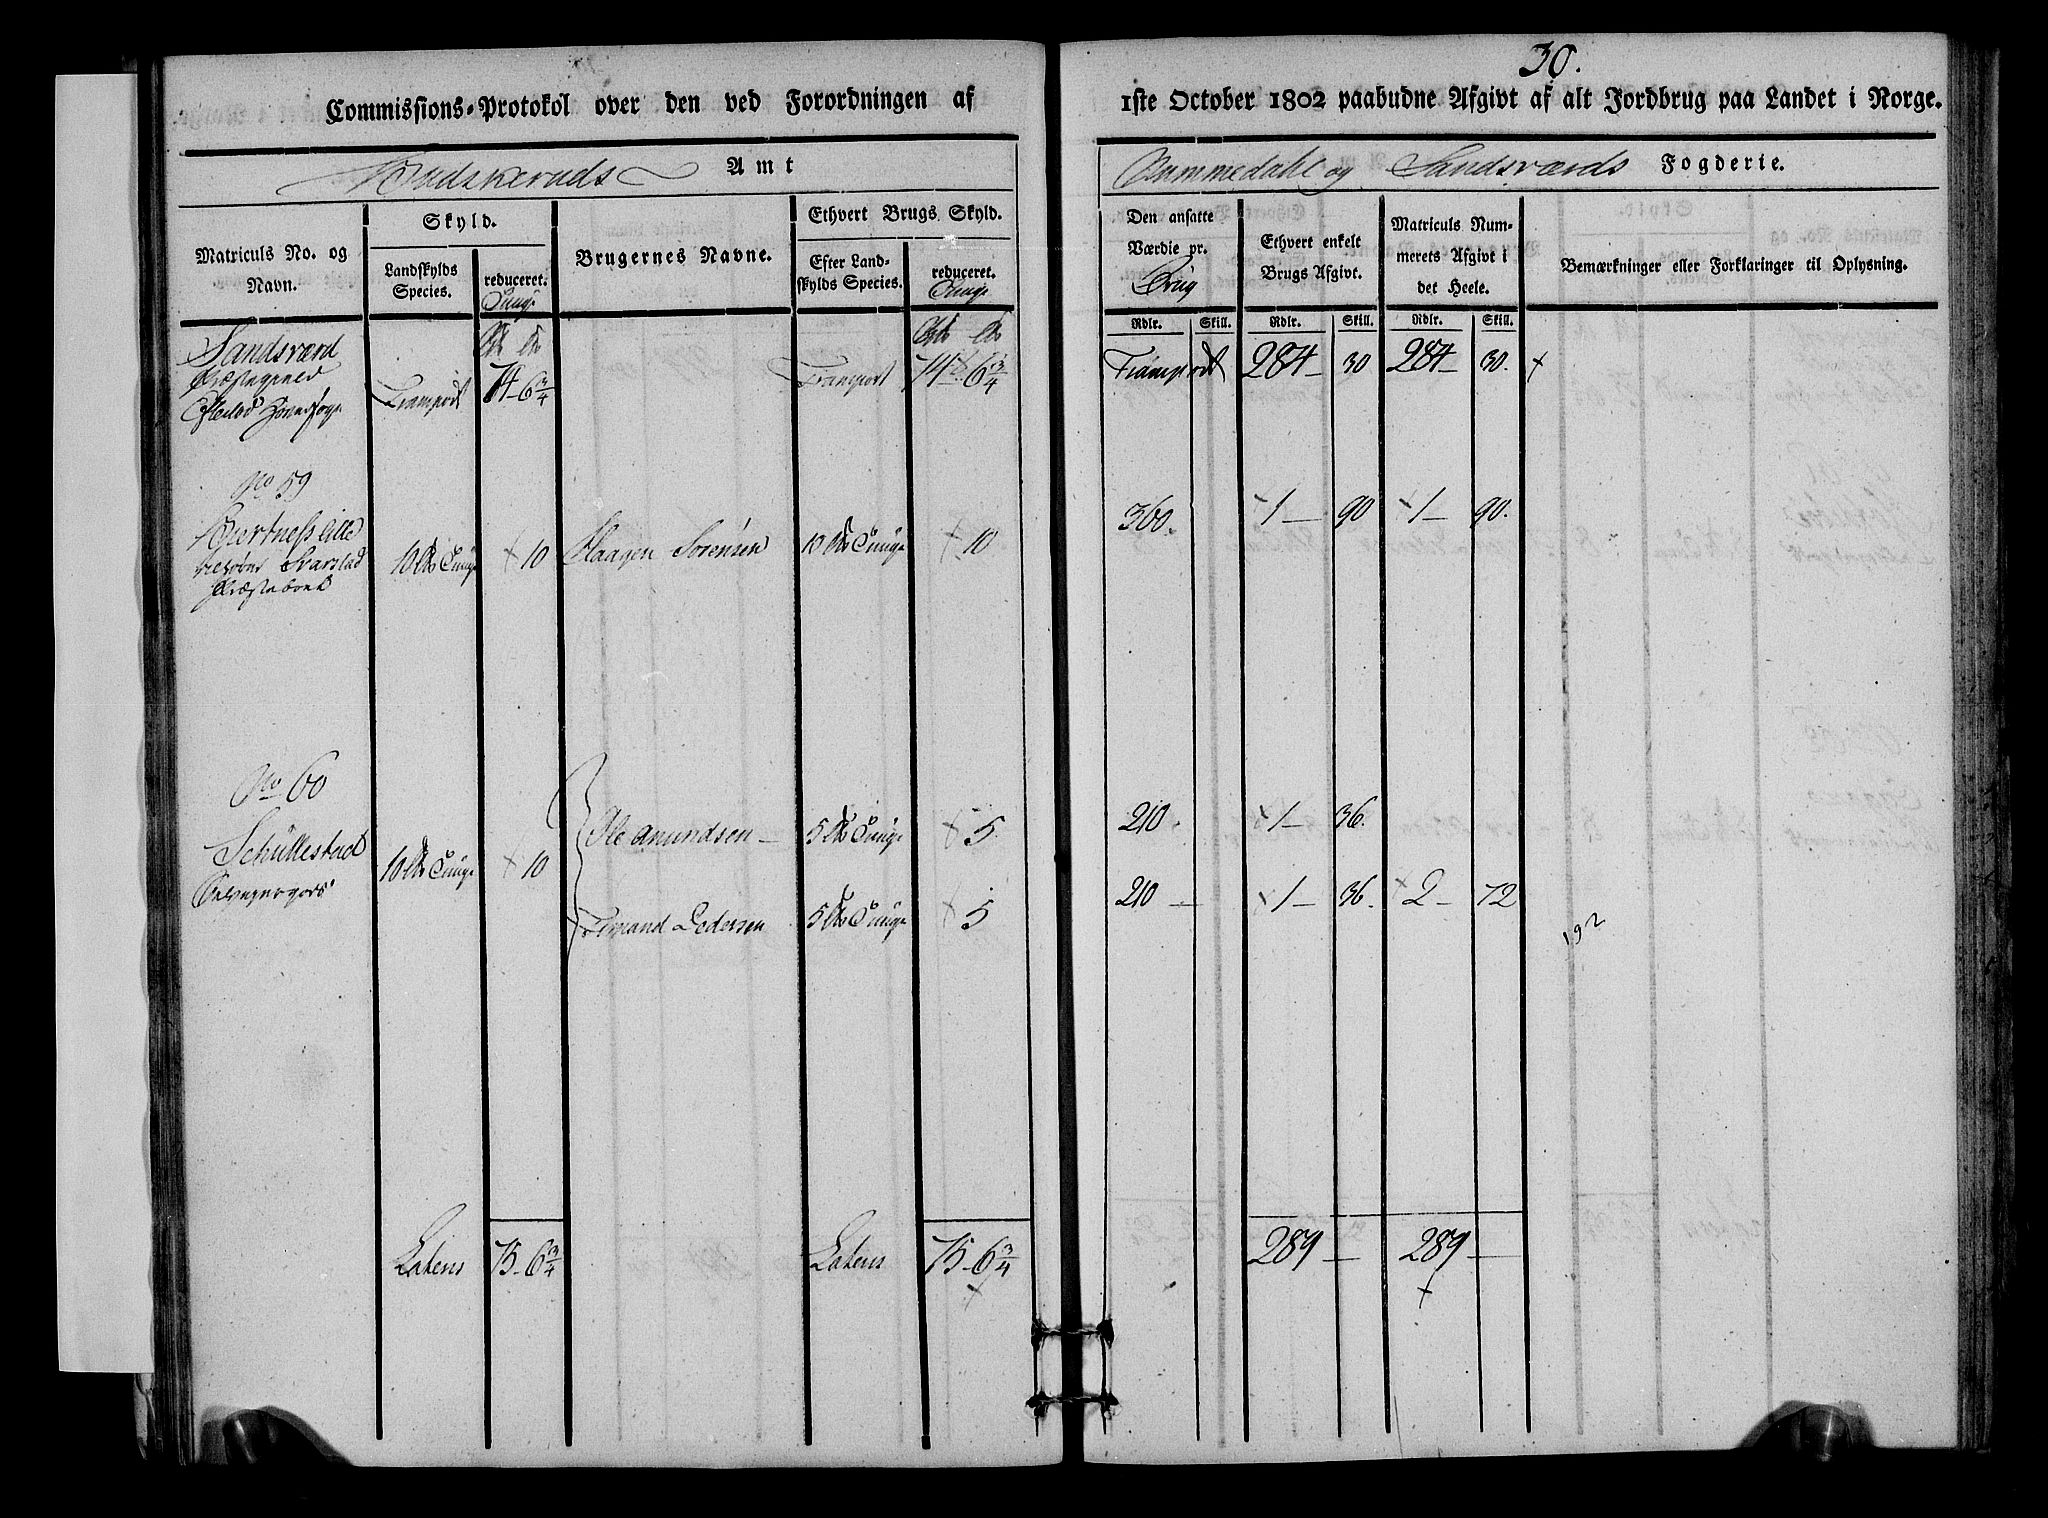 30.
Commissions-Protokol over den ved Forordningen af 1ste October 1802 paabudne Afgivt af alt Jordbrug paa Landet i Norge.
Budskeruds Amt
Nummedahl og Sandsværds Fogderie.
Matriculs No. og Navn.
Skyld.
Landskylds Species.
reduceret. Tunge
Brugernes Navne.
Ethvert Brugs Skyld.
Efter Landskylds Species.
reduceret. Tunge
Den ansatte Værdie pr. Brug
Ethvert enkelt Brugs Afgivt.
Matriculs Nummerets Afgivt i det Heele.
Bemærkninger eller Forklaringer til Oplysning.
Rdlr. Skill. Rdlr. Skill. Rdlr. Skill.
Sandsværd
Præstegield
Transport 74 - 6 3/4 Transport 74 6 3/4 Transport 284 - 30 284 - 30.
No 59
10 Tunge 10 Haagen Sørensen 10 Tunge 10 360. 1 - 90 1 - 90.
No 60
Schüllestad
10 Tunge 10 Ole Amundsen - 5 Tunge 5. 210. 1 - 36.
Amund Pedersen 5 Tunge 5 210 - 1 - 36. 2 - 72
192
Latens 75 - 6 3/4 Latens 75 - 6 3/4 289 - 289 -